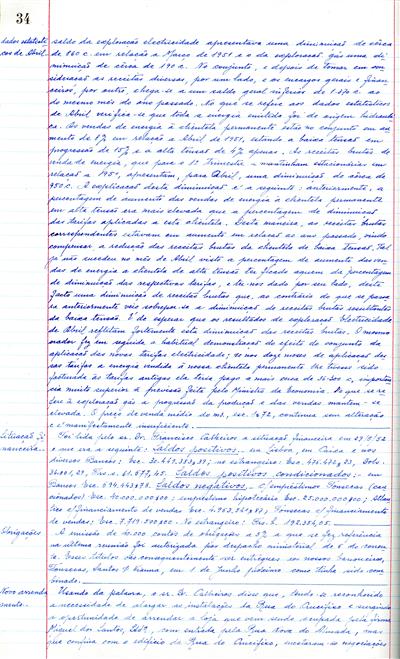 34
dados estatísti-
cos de Abril.
saldo da exploração electricidade apresentava uma diminuição de cêrca
de 860 c. em relação a Março de 1951 e o da exploração gás uma di-
minuição de cêrca de 190 c. No conjunto, e depois de tomar em con-
sideração as receitas diversas, por um lado, e os encargos gerais e finan-
ceiros, por outro, chega-se a um saldo geral inferior de 1.270 c. ao
do mesmo mês do ano passado. No que se refere aos dados estatísticos
de Abril verifica-se que toda a energia emitida foi de origem hidráuli-
ca. As vendas de energia à clientela permanente estão no conjunto em au-
mento de 8% em relação a Abril de 1951, estando a baixa tensão em
progressão de 15% e a alta tensão de 4% apenas. As receitas brutas de
venda de energia, que para o 1º trimestre se mantinham estacionárias em
relação a 1951, apresentam, para Abril, uma diminuição de cêrca de
950 c. A explicação desta diminuição é a seguinte: anteriormente, a
percentagem de aumento das vendas de energia à clientela permanente
em alta tensão era mais elevada que a percentagem de diminuição
das tarifas aplicadas a esta clientela. Desta maneira, as receitas brutas
correspondentes estavam em aumento em relação ao ano passado vindo
compensar a redução das receitas brutas da clientela de baixa tensão. Tal
já não sucedeu no mês de Abril visto a percentagem de aumento das ven-
das de energia à clientela de alta tensão ter ficado aquem da percentagem
de diminuição das respectivas tarifas, e ter-nos dado por seu lado, deste
facto uma diminuição de receitas brutas que, ao contrário do que se passa-
va anteriormente veio sobrepôr-se à diminuição de receitas brutas resultantes
da baixa tensão. É de esperar que os resultados da exploração electricidade
de Abril reflitam fortemente esta diminuição das receitas brutas. O mesmo
orador fez em seguida a habitual demonstração do efeito do conjunto da
aplicação das novas tarifas electricidade; se nos doze meses de aplicação des-
sas tarifas a energia vendida à nossa clientela permanente lhe tivesse sido
facturada às tarifas antigas ela teria pago a mais cerca de contos, importân-
cia muito superior à previsão feita pelo Ministro da Economia. No que se re-
fere à exploração gás a progressão da produção e das vendas mantem-se
elevada. O preço de venda médio do m3, esc. 1$72, continua sem alteração
e é manifestamente insuficiente.
Situação fi-
nanceira.
Foi lida pelo sr. Dr. Francisco Calheiros a situação financeira em 27/5/52
e que era a seguinte: Saldos positivos - em Lisboa, em Caixa e nos
diversos Bancos: Esc. no estrangeiro: Esc. 476.442,23, Dols.
Saldos positivos condicionados: - em
Bancos Esc. Saldos negativos - C/ empréstimos Fonsecas (cau-
cionados) Esc. 40.000.000$00; empréstimo hipotecário Esc. 25.000.000$00; Atlan-
tico c/ financiamento de vendas Esc. Fonsecas c/ financiamento
de vendas: Esc. No estrangeiro: Frs. b. 192.354,05.
Obrigações
A emissão de 40.000 contos de obrigações a 5% a que se fez referência
na última reunião foi autorizada por despacho ministerial de 6 do corren-
te. Esses títulos vão consequentemente ser entregues ao nossos banqueiros,
Fonsecas, Santos & Vianna, em 1 de Junho próximo como tinha sido com-
binado.
Novo arrenda-
mento.
Usando da palavra, o sr. Dr. Calheiros disse que, tendo-se reconhecido
a necessidade de alargar as instalações da Rua do Crucifixo e surgindo
a oportunidade de arrendar a loja que vem sendo ocupada pela firma
Miguel dos Santos, Ldª., com entrada pela Rua Nova do Almada, mas
que confina com o edifício da Rua do Crucifixo, encetaram-se negociações